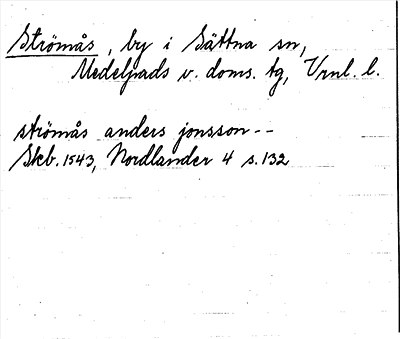 Strömås, by i Sättna sn,
Medelpads v. doms. tg, Vrnl. l.
strömås anders jonsson--
Skb. 1543, Nordlander 4 s. 132